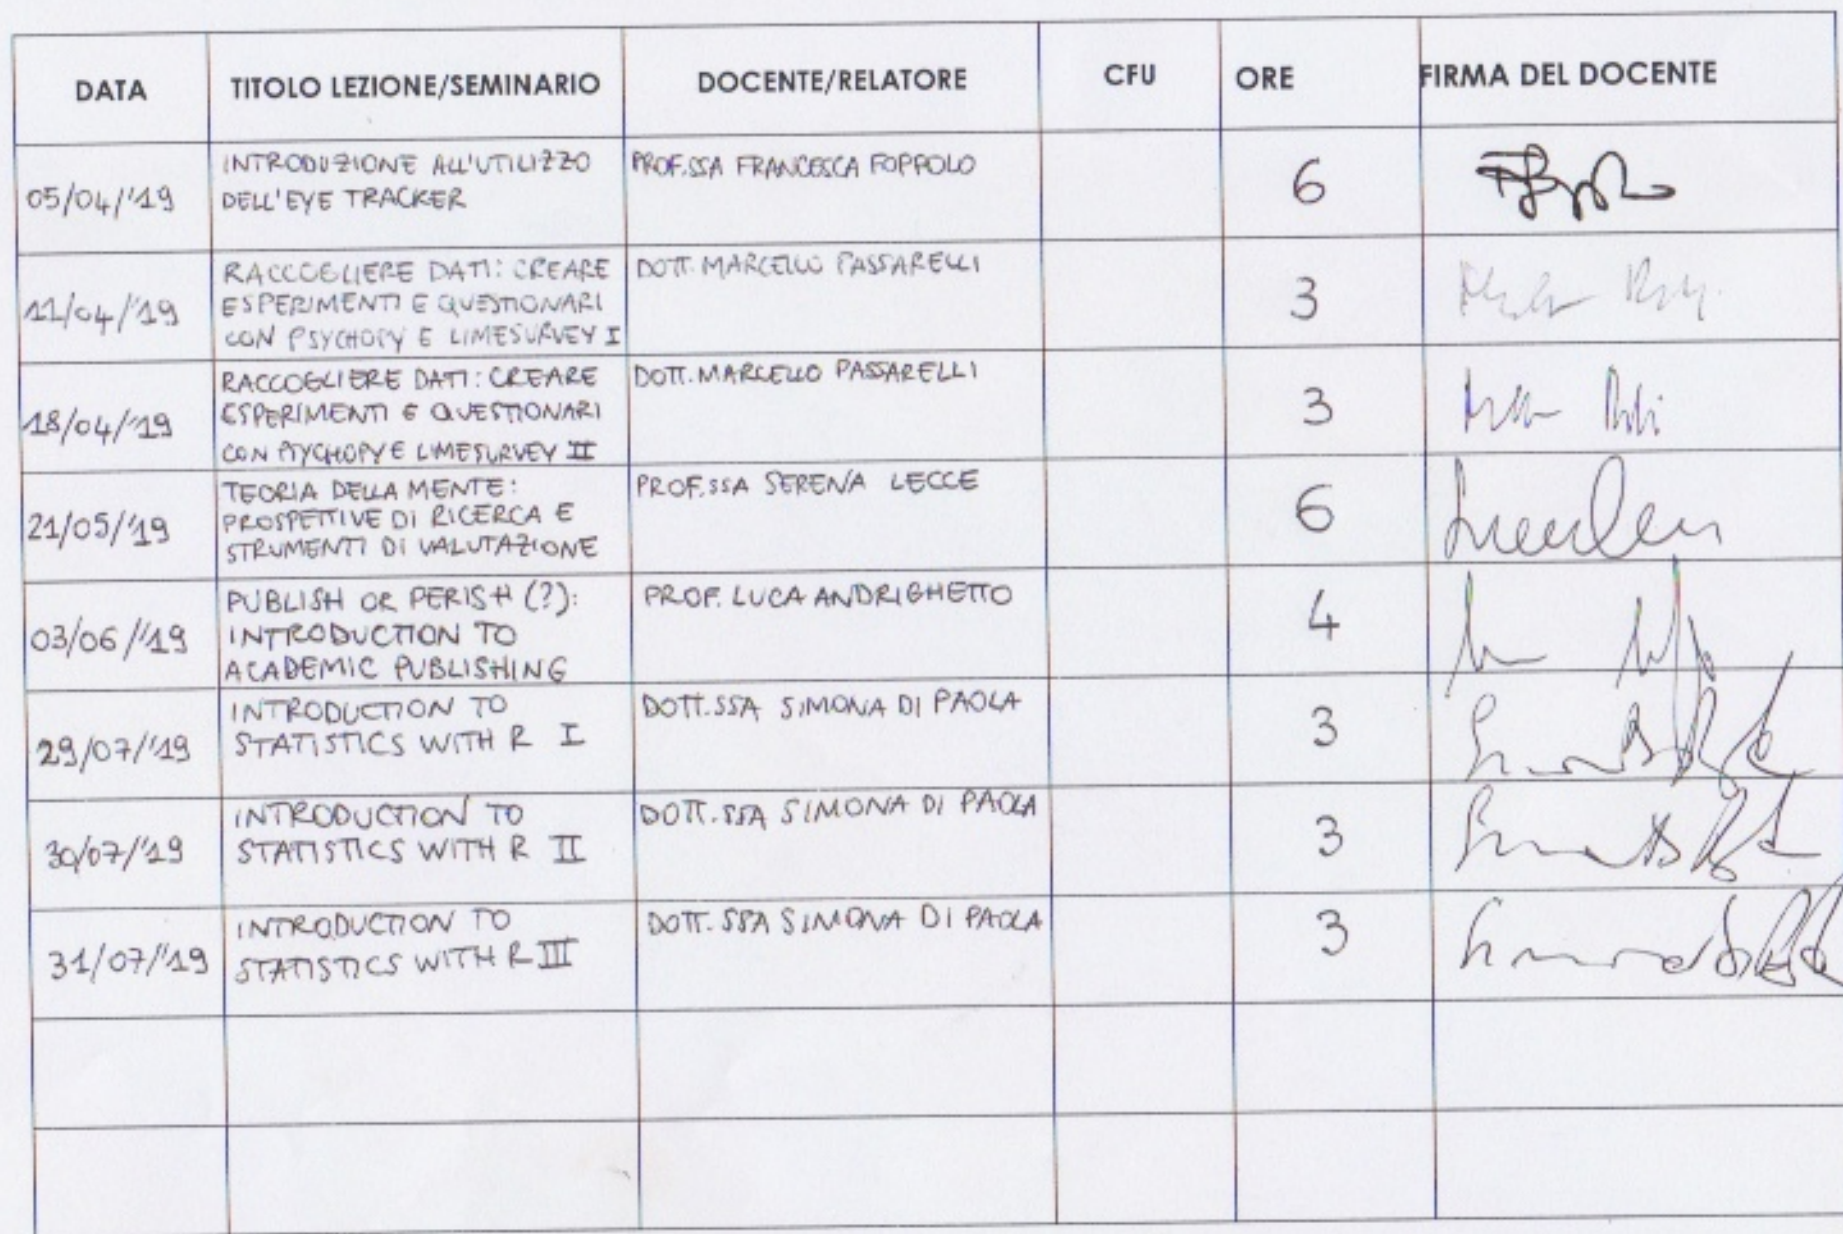 DATA TITOLO LEZIONE/SEMINARIO DOCENTE/RELATORE CFU ORE FIRMA DEL DOCENTE
05/04/'19
INTRODUZIONE ALL'UTILIZZO
DELL'EYE TRACKER
PROF.SSA FRANCESCA FOPPOLO
6
11/04/'19
RACCOGLIERE DATI: CREARE
ESPERIMENTI E QUESTIONARI
CON PSYCHOPY E LIMESURVEY I
DOTT. MARCELLO PASSARELLI
3
18/04/'19
RACCOGLIERE DATI: CREARE
ESPERIMENTI E QUESTIONARI
CON PSYCHOPY E LIMESURVEY II
DOTT. MARCELLO PASSARELLI
3
21/05/'19
TEORIA DELLA MENTE:
PROSPETTIVE DI RICERCA E
STRUMENTI DI VALUTAZIONE
PROF.SSA SERENA LECCE
6
03/06/'19
PUBLISH OR PERISH (?):
INTRODUCTION TO
ACADEMIC PUBLISHING
PROF. LUCA ANDRIGHETTO
4
29/07/'19
INTRODUCTION TO
STATISTICS WITH R I
DOTT.SSA SIMONA DI PAOLA
3
30/07/'19
INTRODUCTION TO
STATISTICS WITH R II
DOTT.SSA SIMONA DI PAOLA
3
31/07/'19
INTRODUCTION TO
STATISTICS WITH R III
DOTT.SSA SIMONA DI PAOLA
3